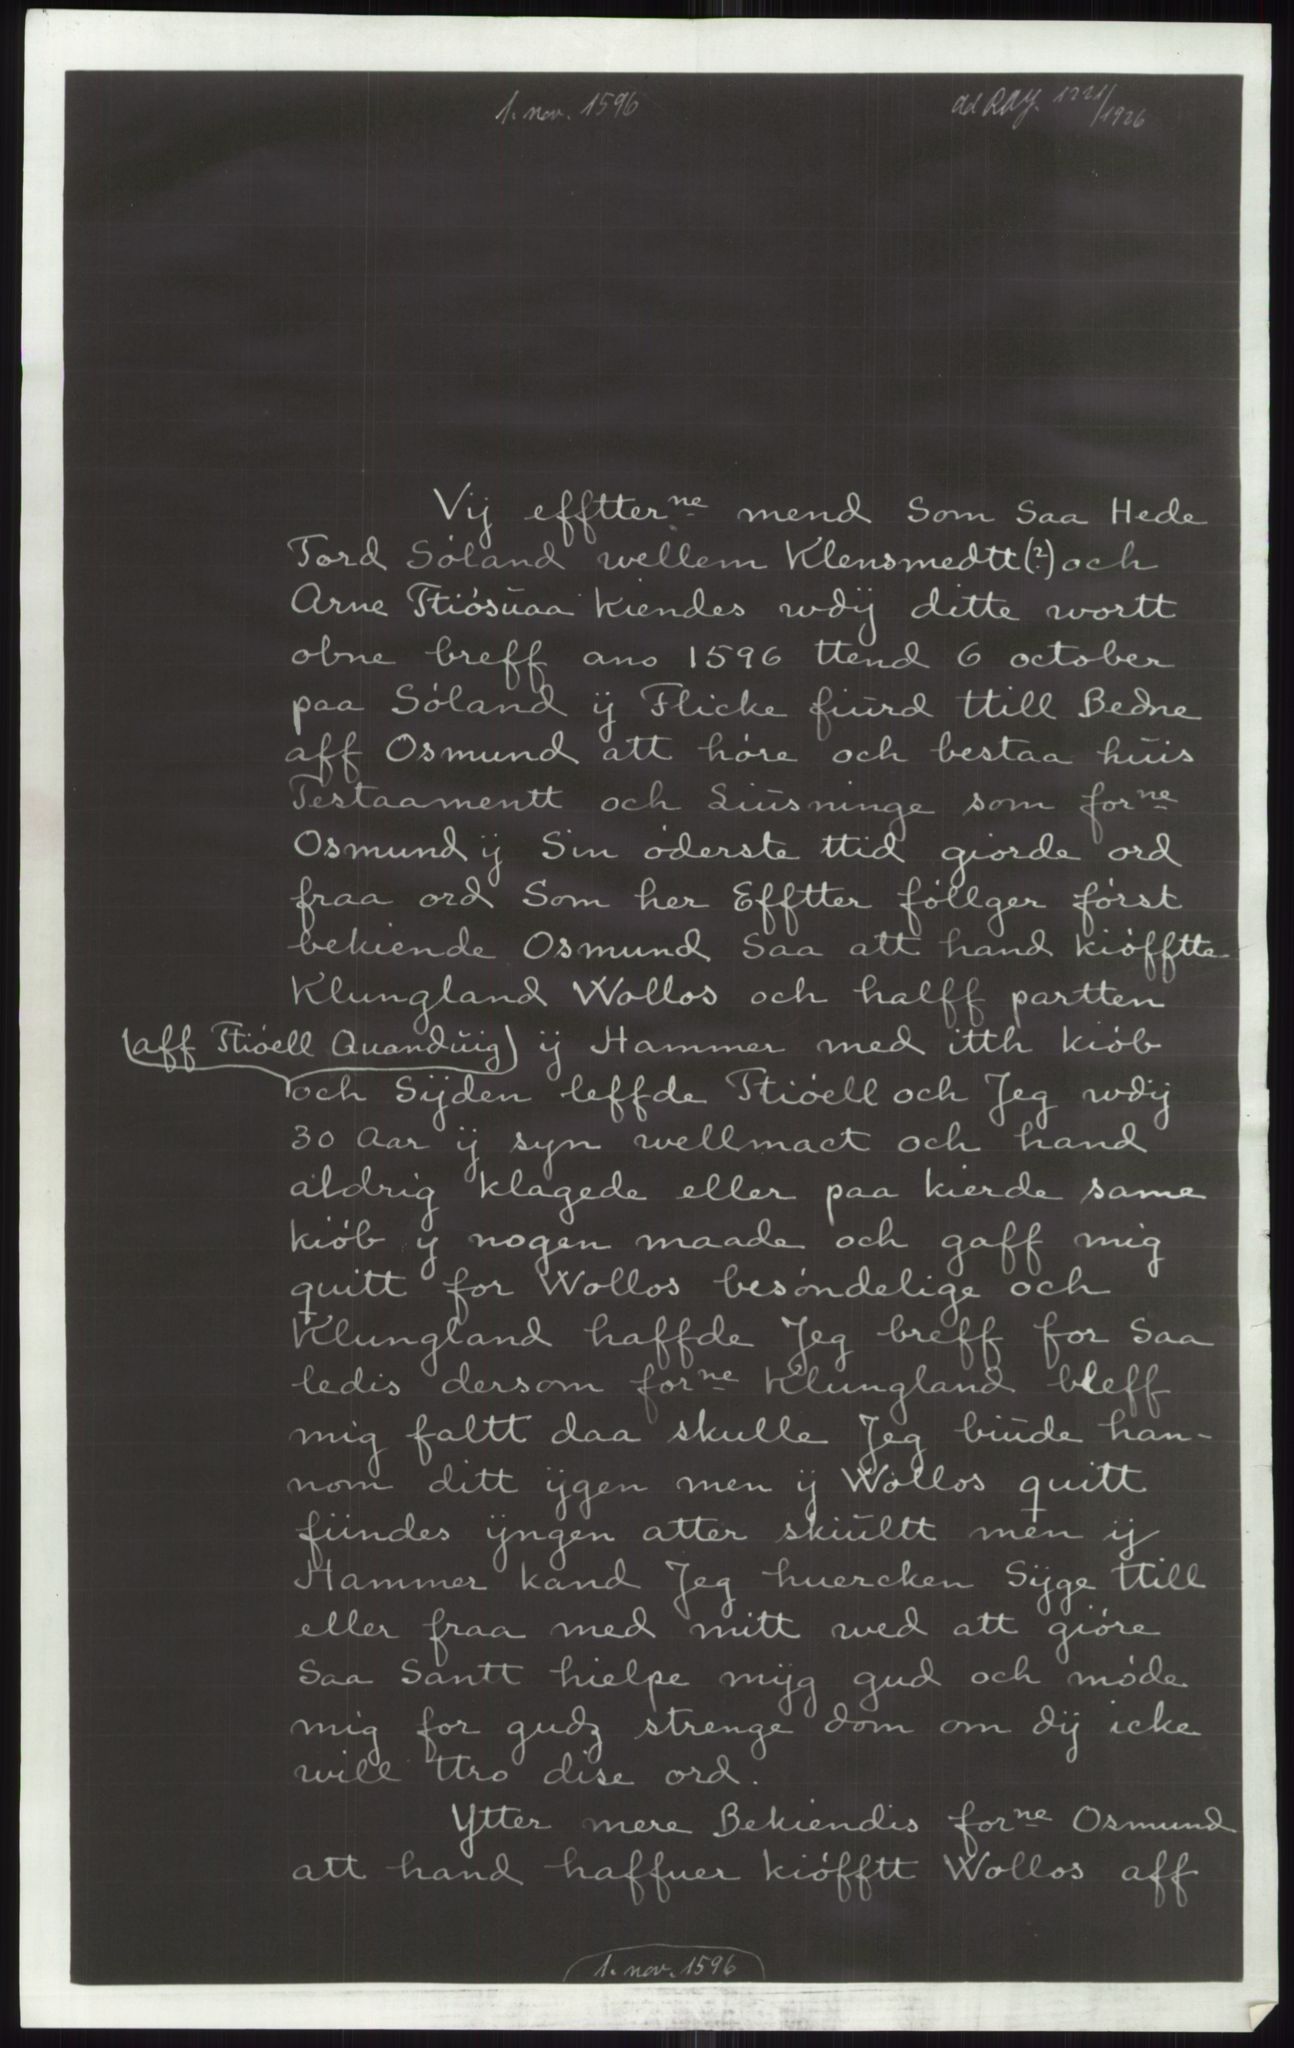 1. nov. 1596
ad RAJ. 1221/1926
Vij efftterne mend Som Saa Hede
Tord Sóland wellem Klensmedtt(?) och
Arne Ttiósŭaa Kiendes wdij ditte wortt
obne breff ano 1596 ttend 6 october
paa Sóland ij Flicke fiŭrd ttill Bedne
aff Osmund att hóre och bestaa hŭis
Testaamentt och Siŭsninge som forne
Osmund ij Sin óderste ttid giorde ord
fraa ord Som her Efftter fóllger fórst
bekiende Osmund Saa att hand kiófftte
Klungland Wollos och halff partten
(aff Ttióell Quandŭig) ij Hammer med itth kiób
och Sijden leffde Ttióell och Jeg wdij
30 Aar ij syn wellmact och hand
aldrig klagede eller paa kierde same
kiób ij nogen maade och gaff mig
quitt for Wollos besóndelige och
Klungland haffde Jeg breff for Saa
ledis dersom forne Klungland bleff
mig faltt daa skulle Jeg biŭde han-
nom ditt ijgen men ij Wollos quitt
fŭndes ijngen atter skiŭltt men ij
Hammer kand Jeg huercken Sijge ttill
eller fraa med mitt wed att gióre
Saa Santt hielpe mijg gud och móde
mig for gudz strenge dom om dij icke
will ttro dise ord.
Ytter mere Bekiendis forne Osmund
att hand haffuer kiófftt Wollos aff
1. nov. 1596